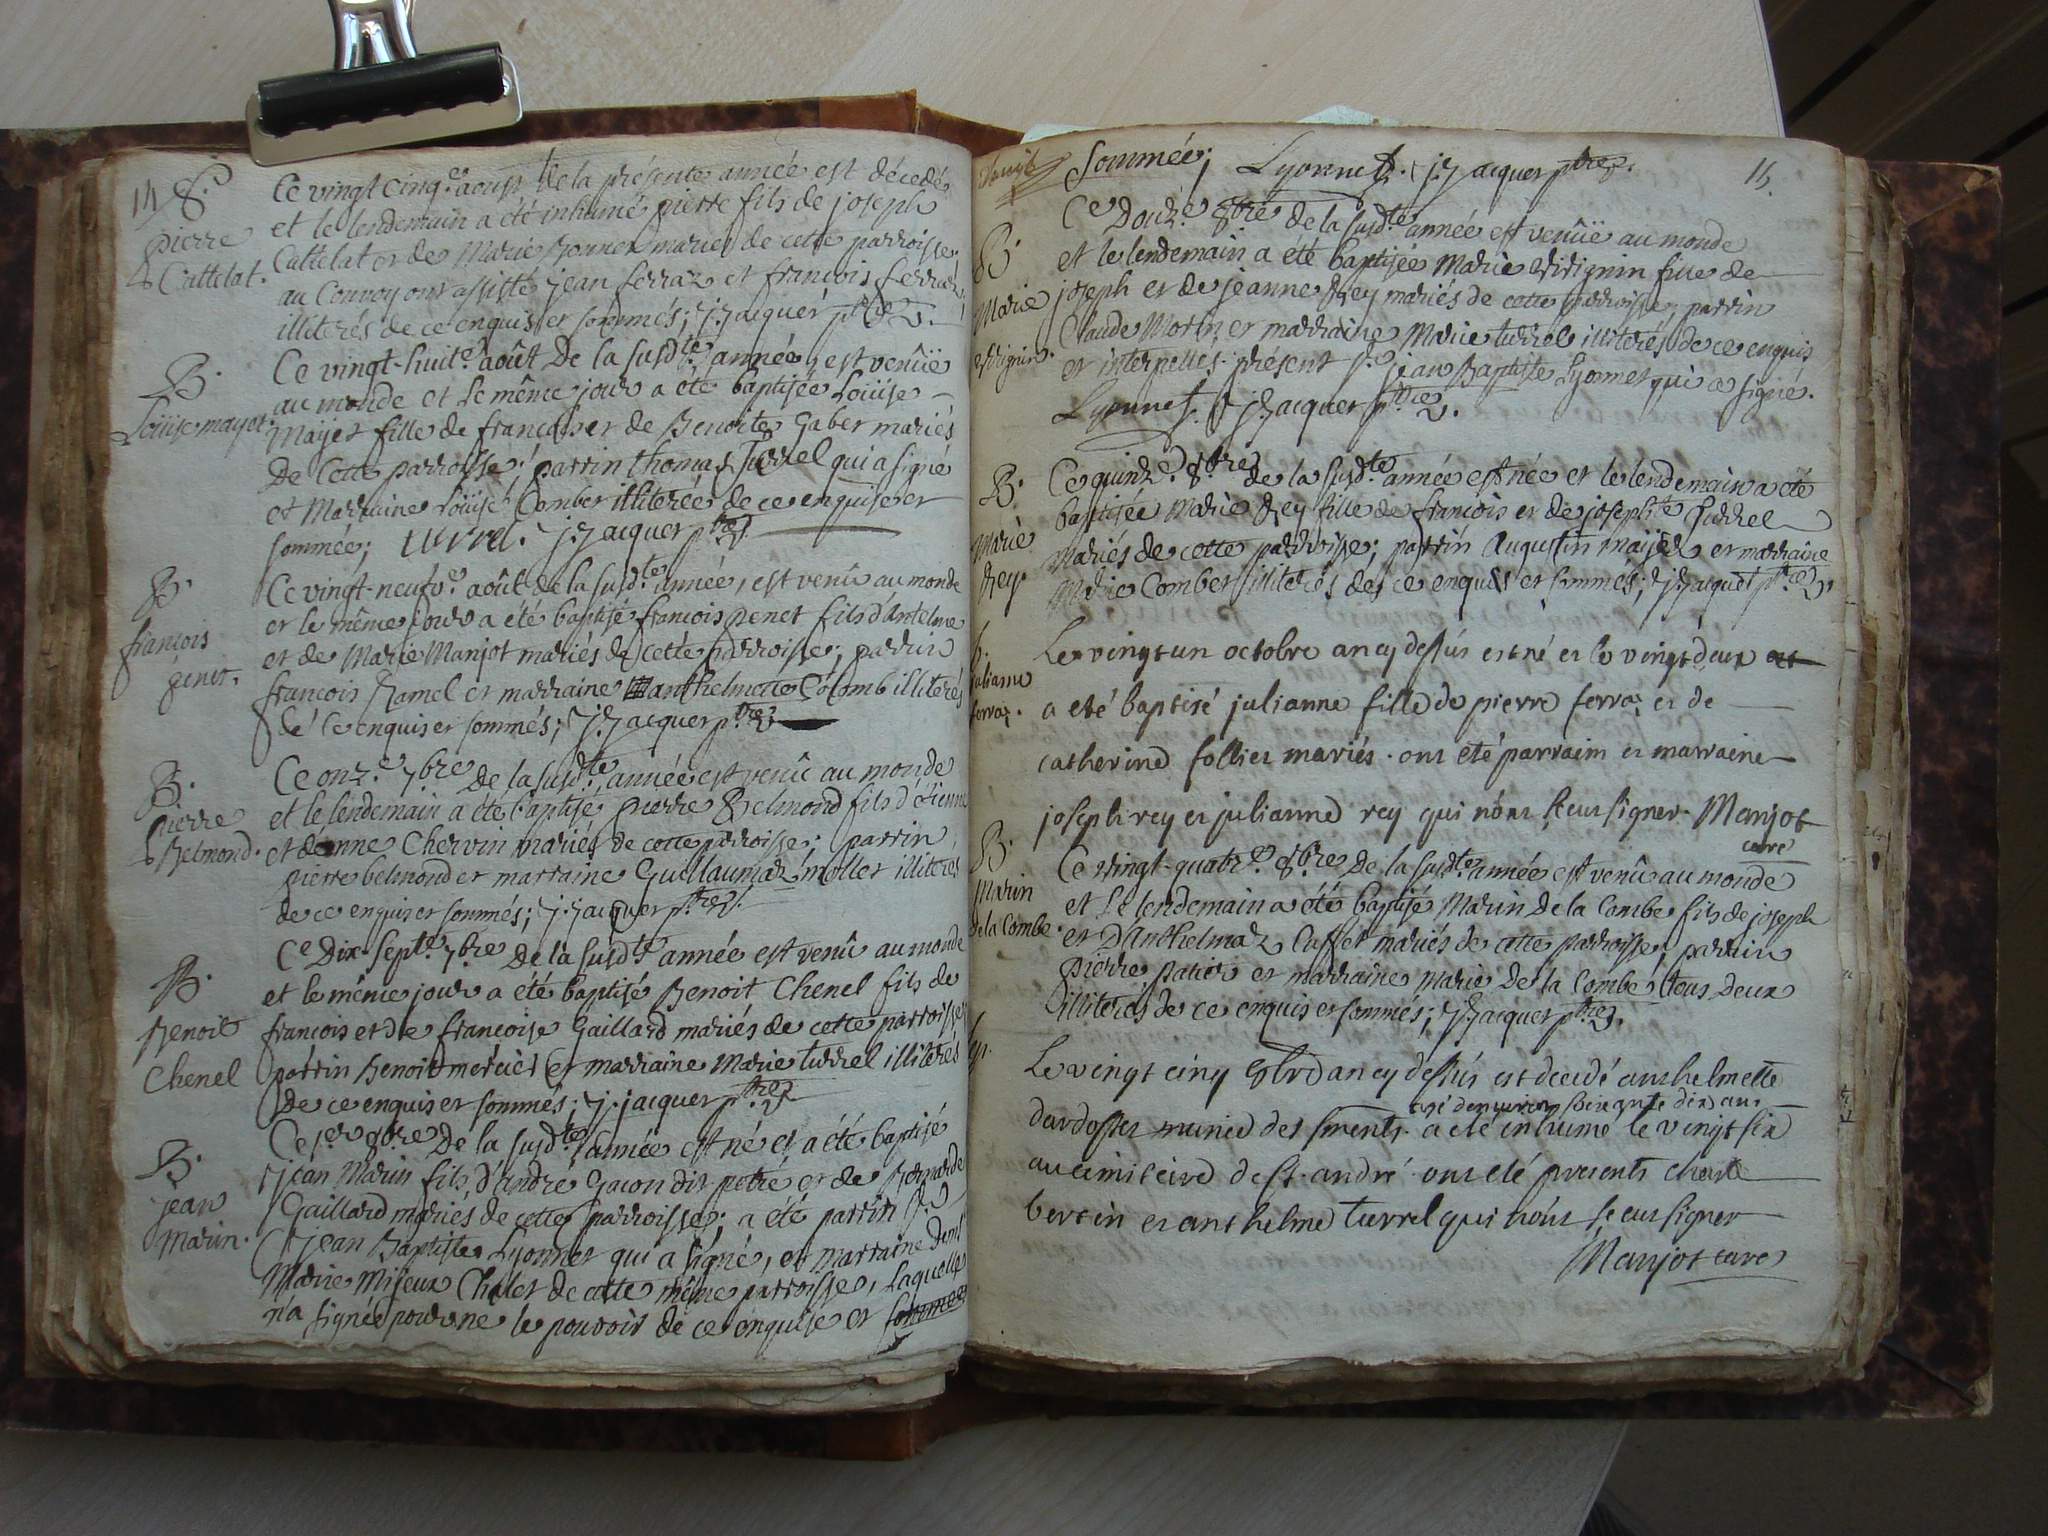 14 S.
Pierre
Cattelat.
Ce vingt cinq.e aoust de la présente année est décedé
et le lendemain a été inhumé pierre fils de joseph
Cattelat et de Marie Bonnet mariés de cette parroisse.
au Convoy ont assisté jean ferraz et françois ferraz
illiterés de ce enquis et sommés; j. jacquer p.tre
B.
Loüise mayet.
Ce vingt-huit.e août De la susd.te année, est venüe
au monde et le même jour a été baptisée Loüise
Mayet fille de françois et de Benoite Gaber mariés
De Cette parroisse; parrin thomas Turrel qui a signé
et Marraine loüise Comber illiterée de ce enquise et
sommée; turrel. j. jacquer p.tre
B.
françois
genet.
Ce vingt-neufv.e août de la susd.te année, est venû au monde
et le même jour a été baptisé françois genet fils d'Antelme
et de Marie Manjot mariés de cette parroisse; parrin
françois Ramel et marraine anthelmette Colomb illiterés
de ce enquis et sommés; j. jacquer p.tre
B.
Pierre
Belmond.
Ce onz.e 7bre De la susd.te année est venû au monde
et le lendemain a été baptisé pierre Belmond fils d'étienne
et danne Chervin mariés de cette parroisse; parrin
pierre belmond et marraine Guillaumaz mollet illiterés
de ce enquis et sommés; j. jacquer p.tre
B.
Benoit
Chenel
Ce Dix-sept.e 7bre De la susd.te année est venû au monde
et le même jour a été baptisé Benoit Chenel fils de
françois et de françoise Gaillard mariés de cette parroisse
parrin Benoit mercier et marraine Marie turrel illiterés
De ce enquis et sommés; j. jacquer p.tre
B.
jean
Marin.
Ce 1er 8bre De la susd.te année est né et a été baptisé
jean Marin fils d'andré Gacon dit petré et de Bernarde
Gaillard mariés de cette parroisse; a été parrin s.r
jean Baptiste Lyonnet qui a signé, et marraine dem.lle
Marie Chalet de cette même parroisse, laquelle
n'a signée pour ne le pouvoir de ce enquise et sommée
Sommée; Lyonnet. j. jacquer p.tre. 15.
B.
Marie
Ce Douz.e 8bre de la susd.te année est venüe au monde
et le lendemain a été baptisée Marie fille de
joseph et de jeanne Rey mariés de cette parroisse; parrin
Claude Morin et marraine Marie turrel illiterés de ce enquis
et interpellés. présent s.r jean Baptiste Lyonnet qui a signé.
Lyonnet. j. jacquer p.tre.
B.
Marie
Rey.
Ce quinz.e 8.bre de la susd.te année est née et le lendemain a été
baptisée Marie Rey fille de françois et de josephte Turrel
Mariés de cette parroisse; parrin Augustin mayet et marraine
Marie Comber illiterés de ce enquis et sommés; j. jacquet p.tre.
b.
julianne
ferraz.
Le vingt un octobre an cy dessus est né et le vingt deux
a eté baptisé julianne fille de pierre ferraz et de
catherine follier mariés. ont eté parraim et marraine
joseph rey et julianne rey qui n'ont sceu signer. Manjot
curé
B.
Marin
de la Combe.
Ce vingt-quatr.e 8.bre De la susd.te année est venû au monde
et Le lendemain a été baptisé Marin De la Combe fils de joseph
et D'Anthelmaz Caffet mariés de cette parroisse; parrin
pierre patier et marraine Marie De la Combe, tous Deux
illiterés de ce enquis et sommés; j. jacquer p.tre.
Le vingt cinq 8bre an cy dessus est decedé anthelmette
agé denviron soixante dix ans
dardossier munie des sments. a eté inhumé le vingt six
au cimiteire de St. andré. ont eté presents charle
bertin et anthelme turrel qui n'ont sceu signer
Manjot curé